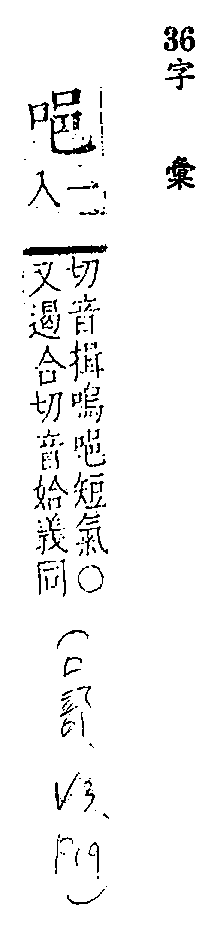 36字彙
唈
一
入
切音揖嗚唈短氣○
又遏合切音姶義同
(口部、V3、P19)